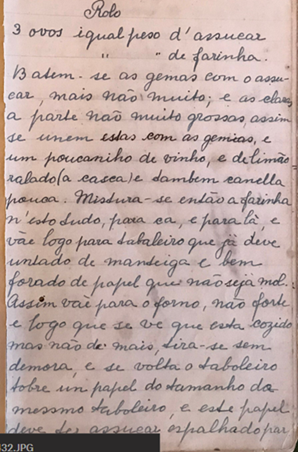 Rolo
3 ovos igual peso d'assucar
" " de farinha.
Batem-se as gemas com o assu-
car, mais não muito; e as claras
a parte não muito grossas, assim
se unem estas com as gemas, e
um poucaninho de vinho, e de limão
ralado (a casca) e tambem canella
pouca. Mistura-se então a farinha
n'esto tudo, para ca, e para lá, e
vàe logo para tabaleiro que já deve
untado de manteiga e bem
forado de papel que não seja mol.
Assim vàe para o forno, não forte
e logo que se ve que esta cozido
mas não de mais, tira-se sem
demora, e se volta o taboleiro
sobre un papel do tamanho do
mesmo taboleiro, e este papel
deve ter assucar espalhado por
32.JPG